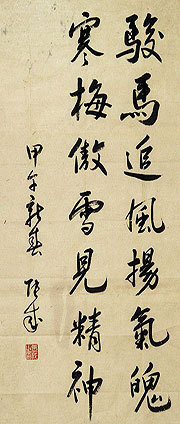 駿馬追風揚氣魄
寒梅傲雪見精神
甲午新春